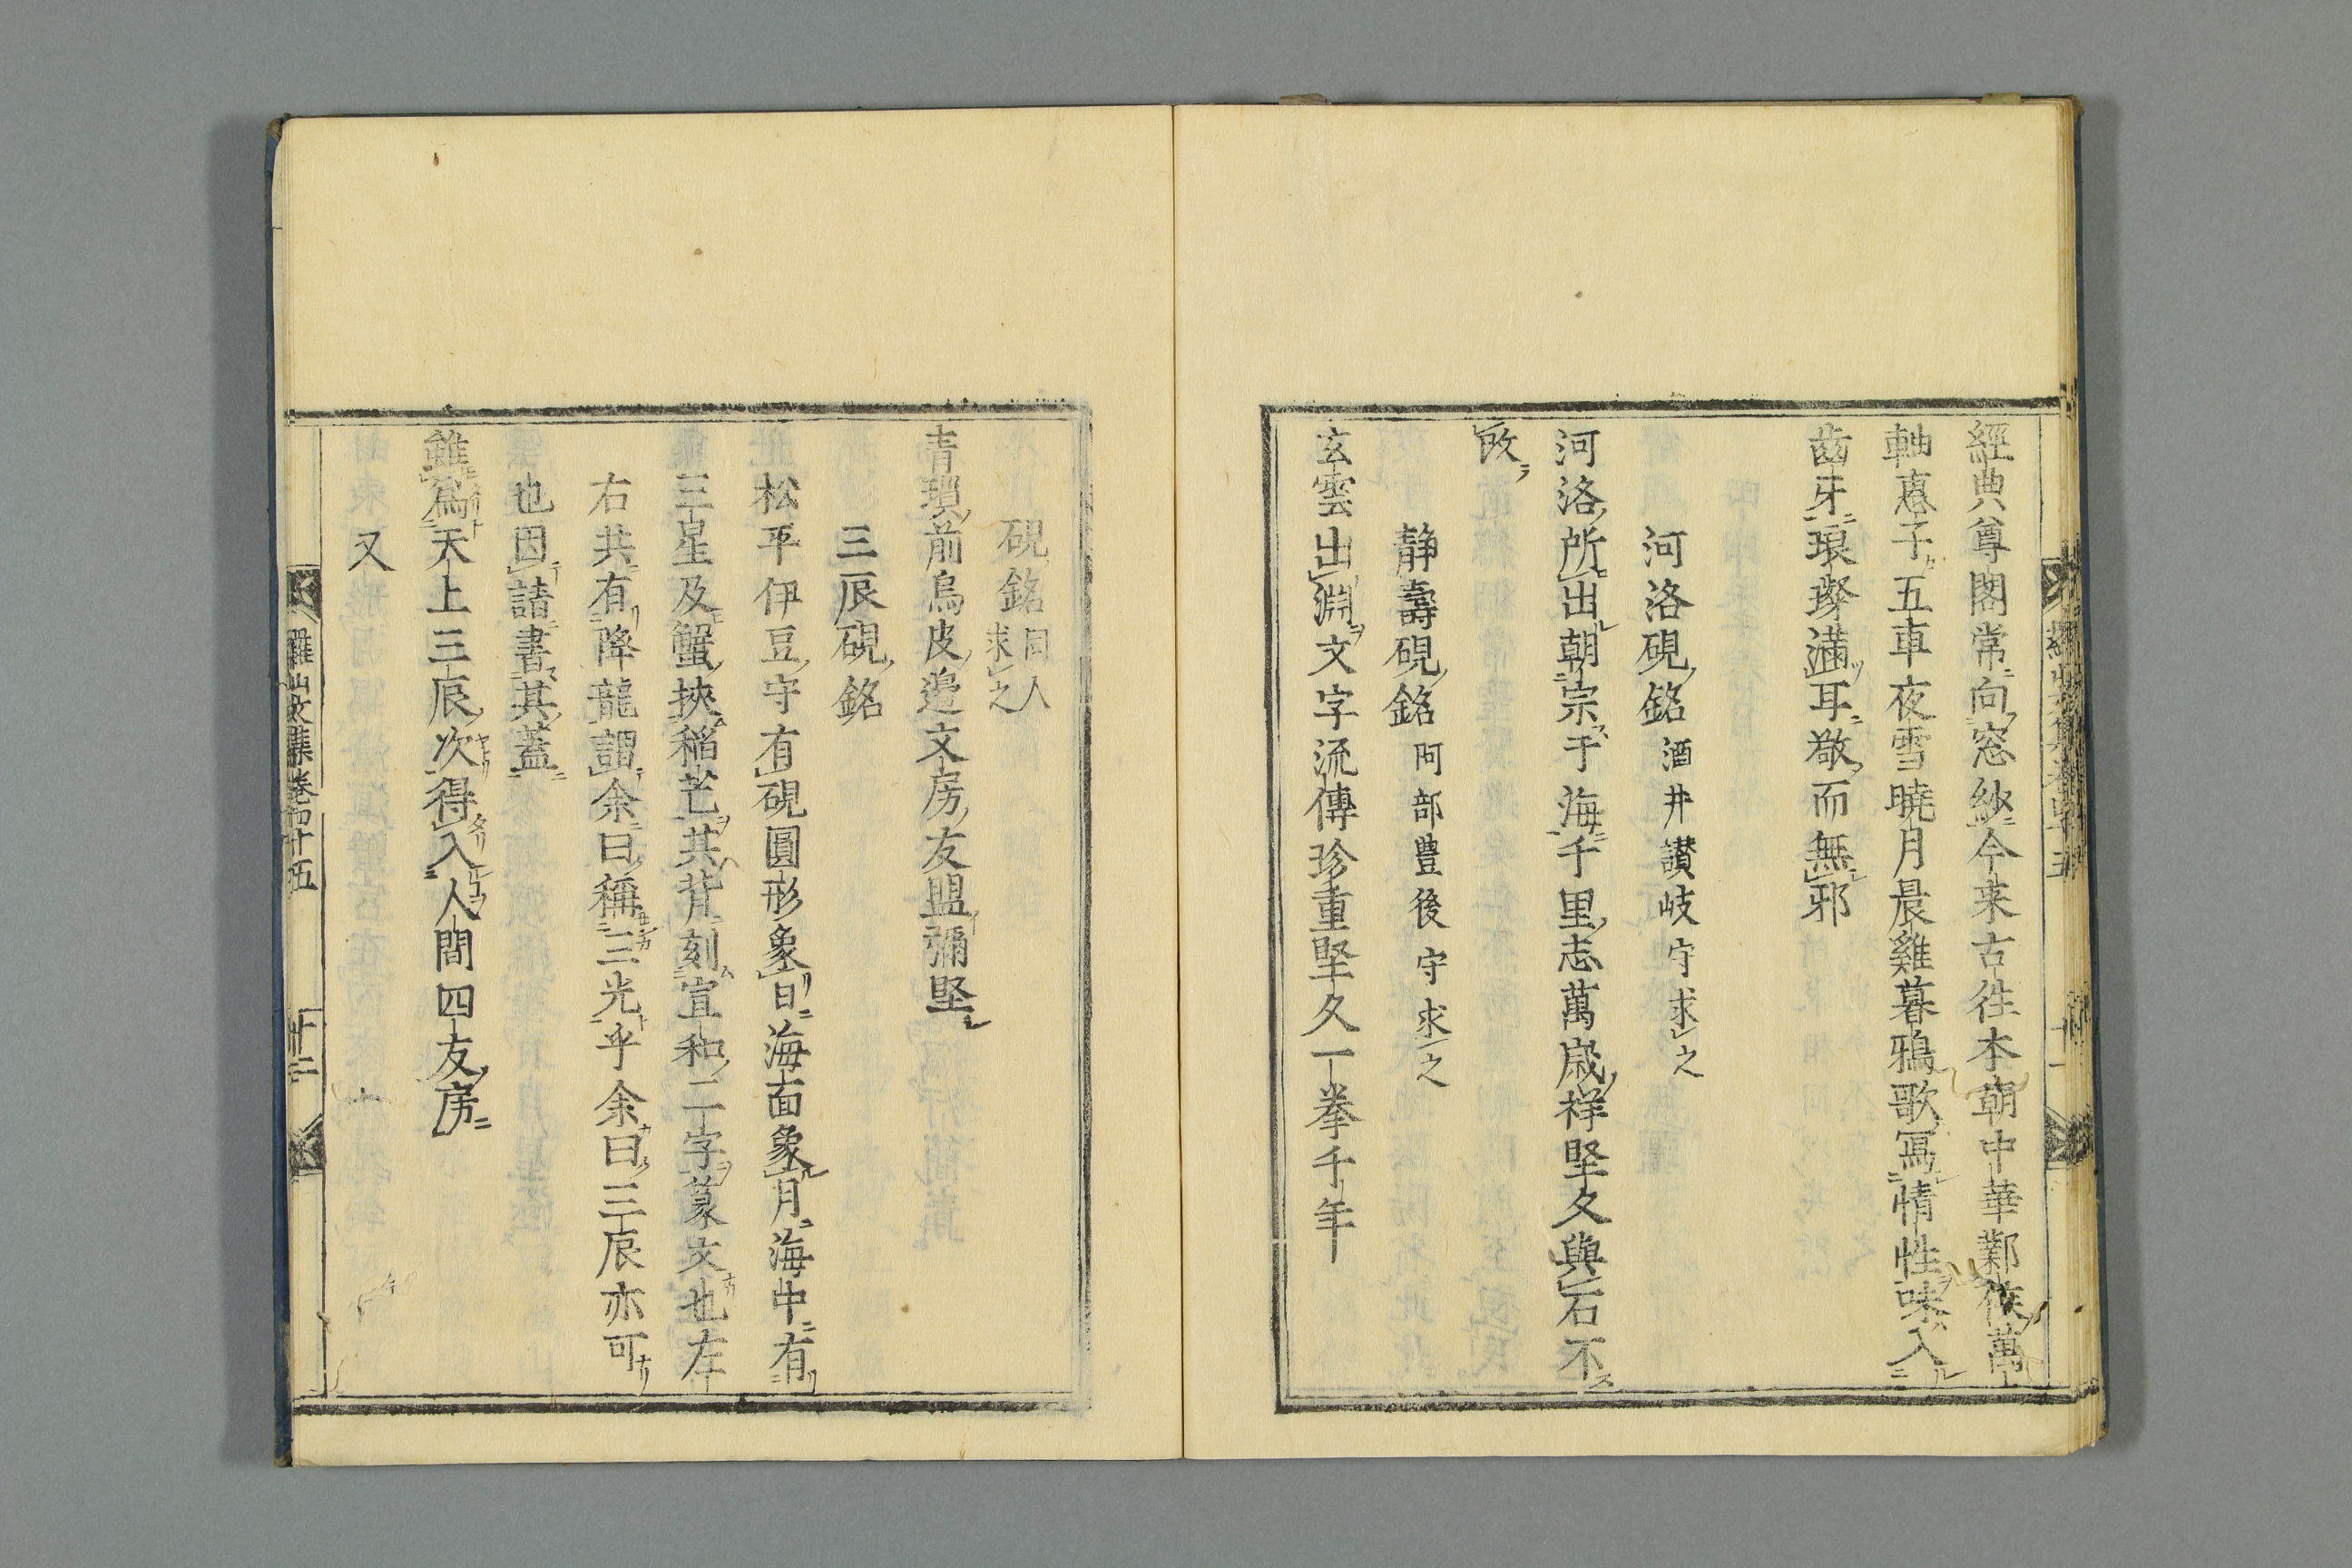 經典尊閣常向窓紗今來古徃本朝中華鄴侯萬
軸惠子五車夜雪曉月晨雞暮鴉歌寫情性味入
齒牙琅璆滿耳敬而無邪
河洛硯銘 酒井讃岐守求之
河洛所出朝宗于海千里志萬歲祥堅久與石不
改
静壽硯銘 阿部豊後守求之
玄雲出淵文字流傳珍重堅久一拳千年
硯銘 同人求之
青瑣前烏皮邊文房友盟彌堅
三辰硯銘
松平伊豆守有硯圓形象日海面象月海中有
三星及蟹挾稲芒其背刻宣和二字篆文也左
右共有降龍謂余曰稱三光乎余曰三辰亦可
也因請書其蓋
雖爲天上三辰次得入人間四友房
又
羅山文集卷四十五
十二